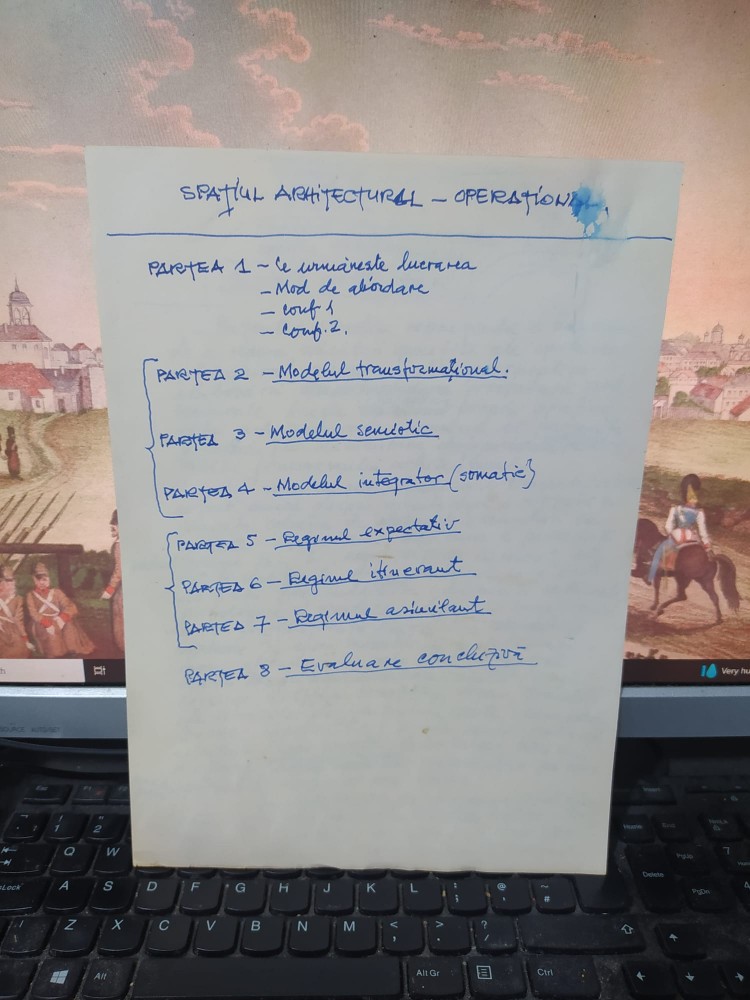 SPAȚIUL ARHITECTURAL – OPERAȚIONAL
PARTEA 1 – Ce urmărește lucrarea
– Mod de abordare
– conf 1
– conf. 2.
PARTEA 2 – Modelul transformațional.
PARTEA 3 – Modelul semiotic
PARTEA 4 – Modelul integrator (somatic)
PARTEA 5 – Regimul expectativ
PARTEA 6 – Regimul itinerant
PARTEA 7 – Regimul asimilant
PARTEA 8 – Evaluare concluzivă
Very hu
Q W
A S D F G H J K L
Z X C V B N M
Alt Alt Gr Ctrl